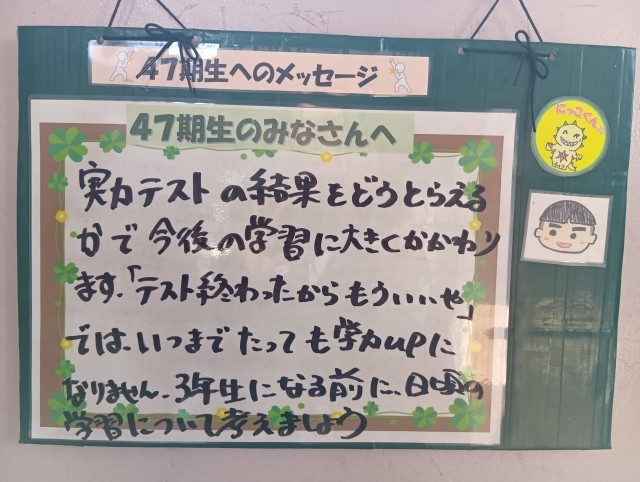 47期生へのメッセージ
47期生のみなさんへ
にっこくん
実力テストの結果をどうとらえる
かで今後の学習に大きくかかわり
ます.「テスト終わったからもういいや」
では.いつまでたっても学力upに
なりません.3年生になる前に、日頃の
学習について考えましょう